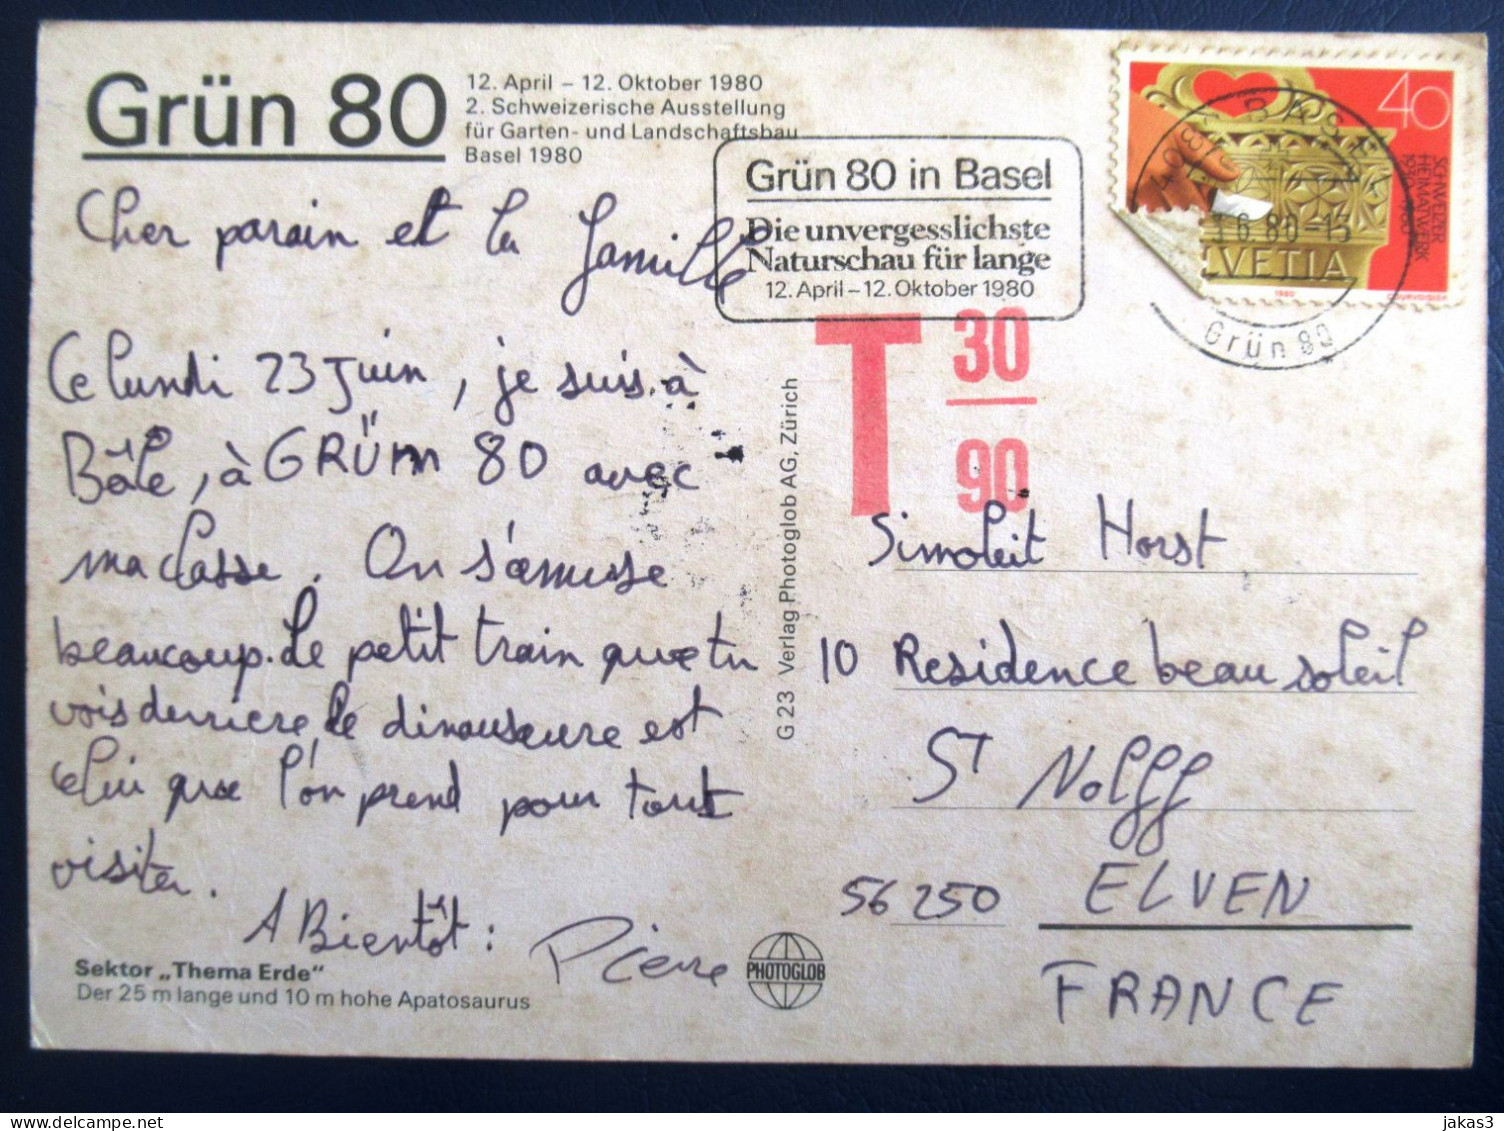 Grün 80
12. April – 12. Oktober 1980
2. Schweizerische Ausstellung
für Garten- und Landschaftsbau
Basel 1980
Grün 80 in Basel
Die unvergesslichste
Naturschau für lange
12. April – 12. Oktober 1980
BASEL
6.80-13
Grün 80
40
SCHWEIZER
HEIMATWERK
HELVETIA
1980
COURVOISIER
T 30
90
Cher parain et la famille
Ce lundi 23 Juin, je suis à
Bâle, à GRÜM 80 avec
ma classe. On s'amuse
beaucoup. Le petit train que tu
vois derriere le dinauseure est
celui que l'on prend pour tout
visiter.
A Bientôt :
Pierre
Sektor „Thema Erde"
Der 25 m lange und 10 m hohe Apatosaurus
PHOTOGLOB
G 23 Verlag Photoglob AG, Zürich
Simoleit Horst
10 Residence beau soleil
ST Nolff
56 250 ELVEN
FRANCE
jakas3